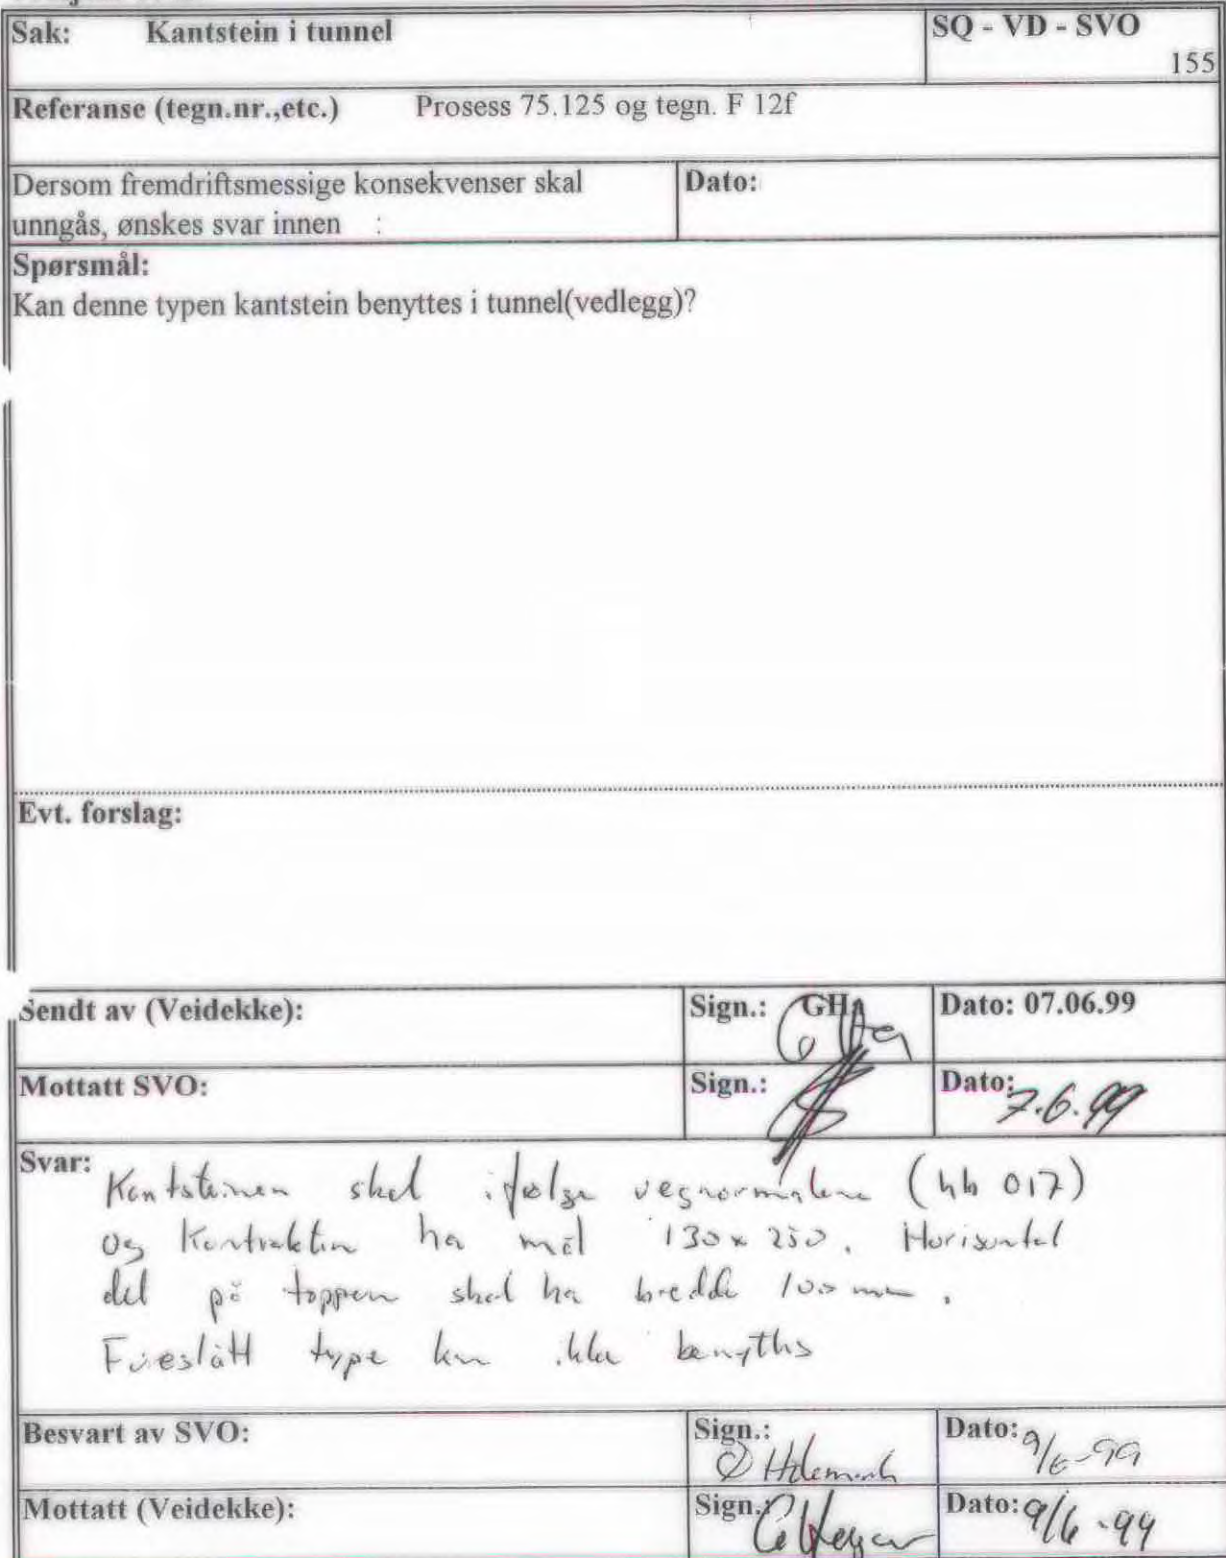 Sak: Kantstein i tunnel
SQ - VD - SVO
155
Referanse (tegn.nr.,etc.) Prosess 75.125 og tegn. F 12f
Dersom fremdriftsmessige konsekvenser skal
unngås, ønskes svar innen :
Dato:
Spørsmål:
Kan denne typen kantstein benyttes i tunnel(vedlegg)?
Evt. forslag:
Sendt av (Veidekke):
Sign.: GHA
Dato: 07.06.99
Mottatt SVO:
Sign.:
Dato: 7.6.99
Svar:
Kantsteinen skal ifølge vegnormalene (hb 017)
og kontrakten ha mål 130 x 250. Horisontal
del på toppen skal ha bredde 100 mm.
Foreslått type kan ikke benyttes
Besvart av SVO:
Sign.:
Dato: 9/6-99
Mottatt (Veidekke):
Sign.:
Dato: 9/6-99